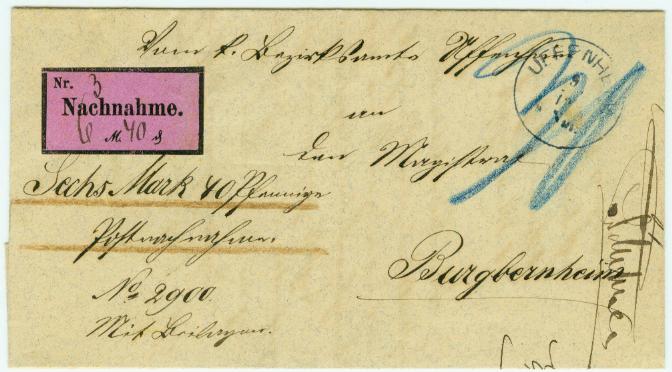 Vom k. Bezirksamte Uffenheim
an
den Magistrat
Burgbernheim
UFFENHEIM
Nr. 3
Nachnahme.
6 M. 40 ₰
Sechs Mark 40 Pfennige
Postnachnahme.
No 2900.
Mit Beilagen.